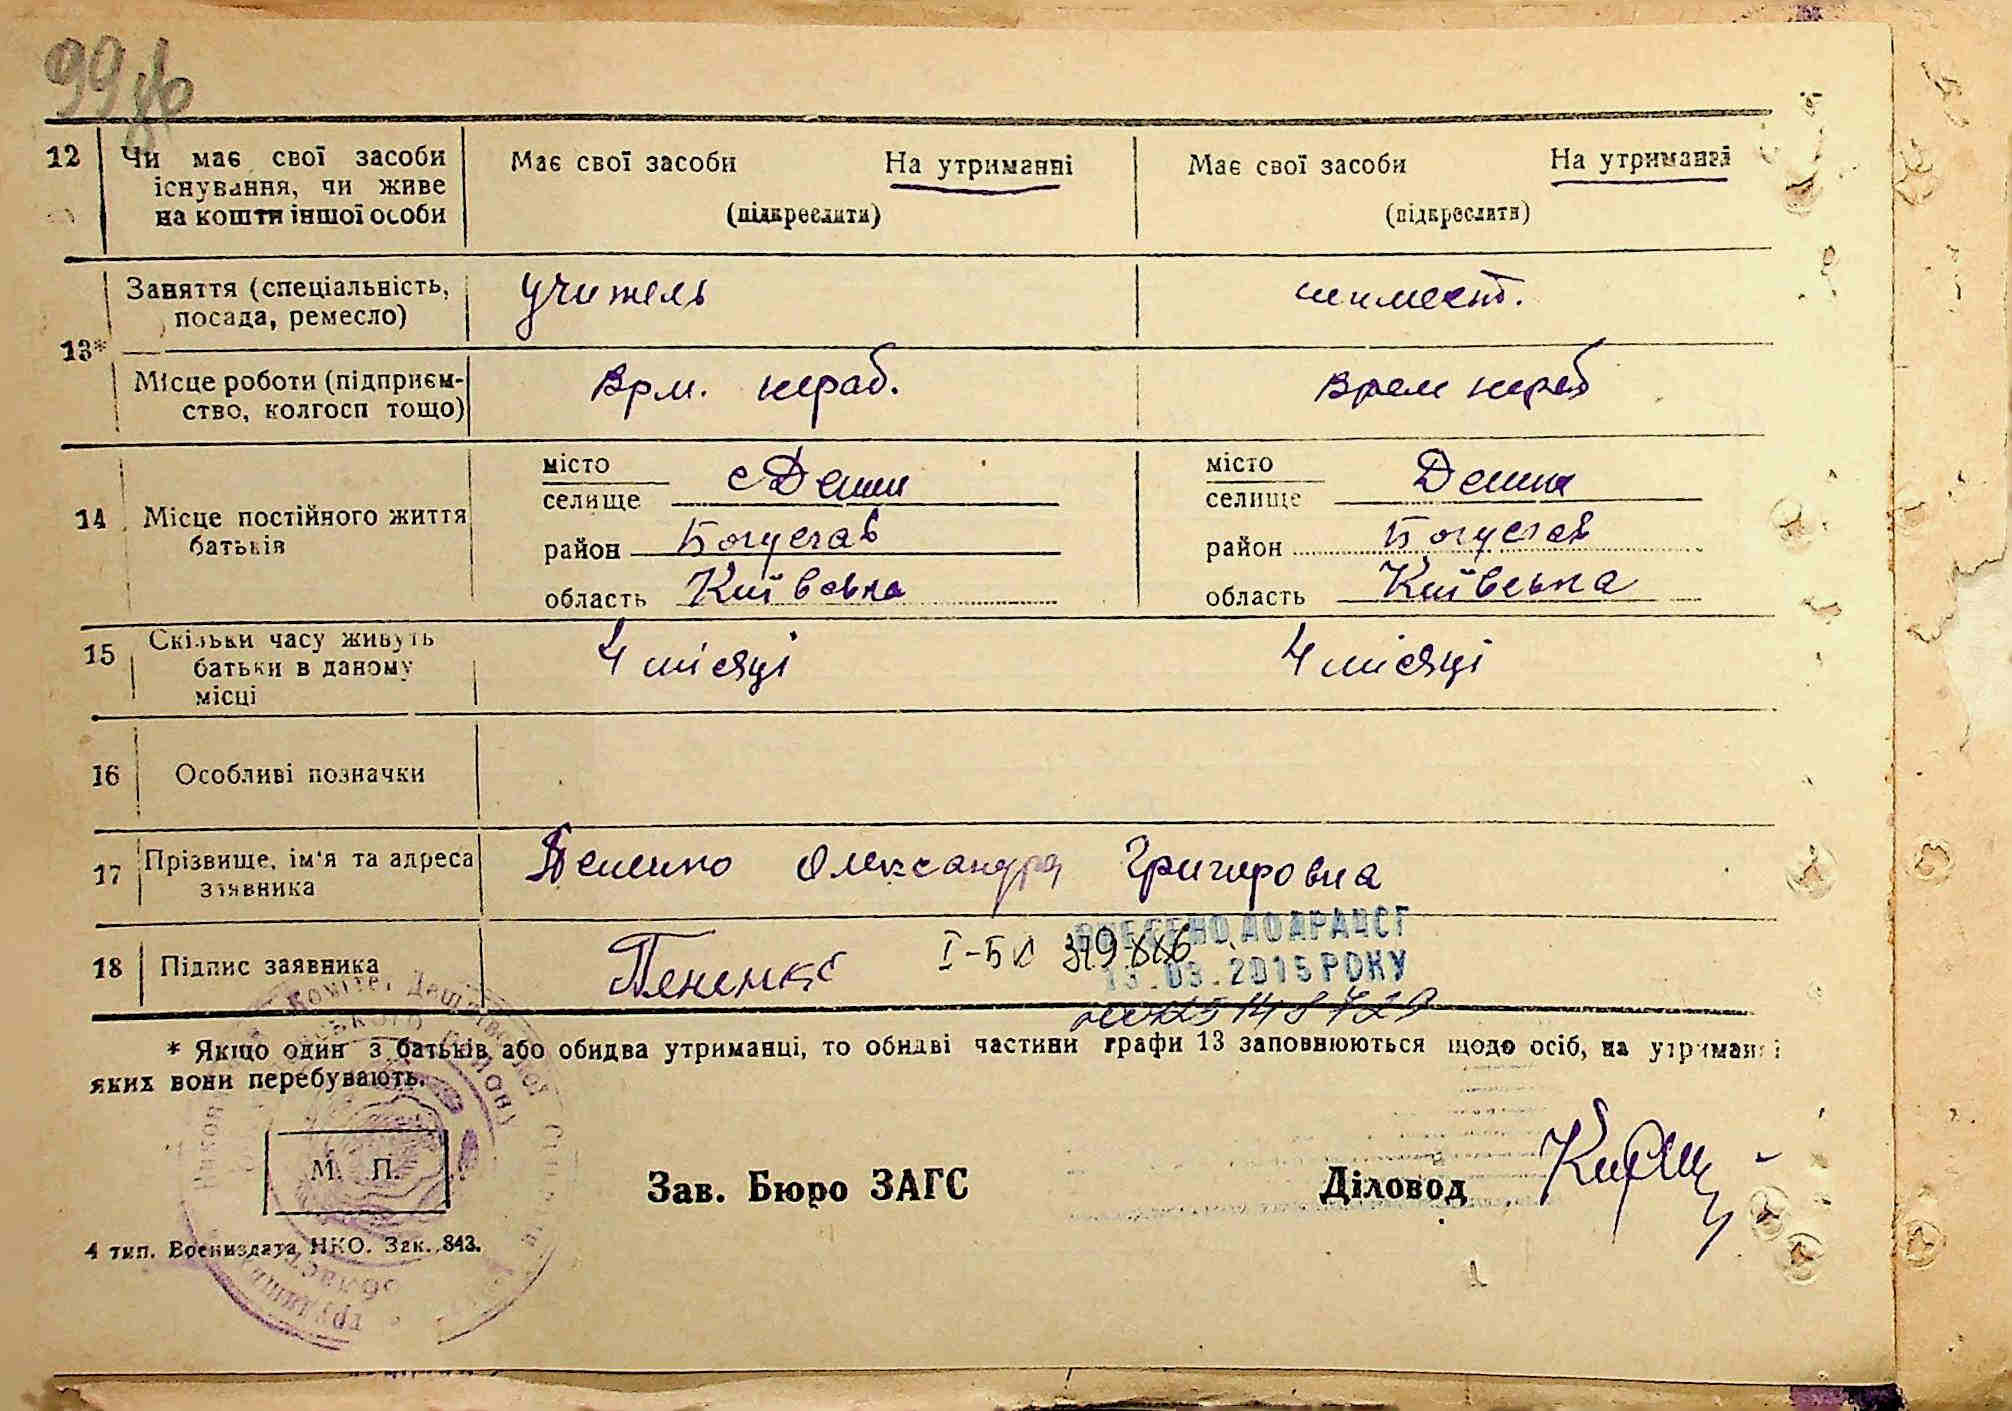 99
12 Чи має свої засоби Має свої засоби На утриманні Має свої засоби На утриманні
існування, чи живе
на кошти іншої особи (підкреслити) (підкреслити)
Заняття (спеціальність, учитель
посада, ремесло)
13*
Місце роботи (підприєм- Врм. нераб. Врем нераб
ство, колгосп тощо)
місто місто
селище селище
14 Місце постійного життя
батьків
район Богуслав район Богуслав
область Київська область Київська
15 Скільки часу живуть 4 місяці 4 місяці
батьки в даному
місці
16 Особливі позначки
17 Прізвище, ім'я та адреса Олександра Григоровна
заявника
ВНЕСЕНО ДО ДРАЦСГ
18 Підпис заявника І-БК
13.03.2015 РОКУ
* Якщо один з батьків або обидва утриманці, то обидві частини графи 13 заповнюються щодо осіб, на утриманні
яких вони перебувають.
М. П. Зав. Бюро ЗАГС Діловод
4 тип. Воениздата НКО. Зак. 843.